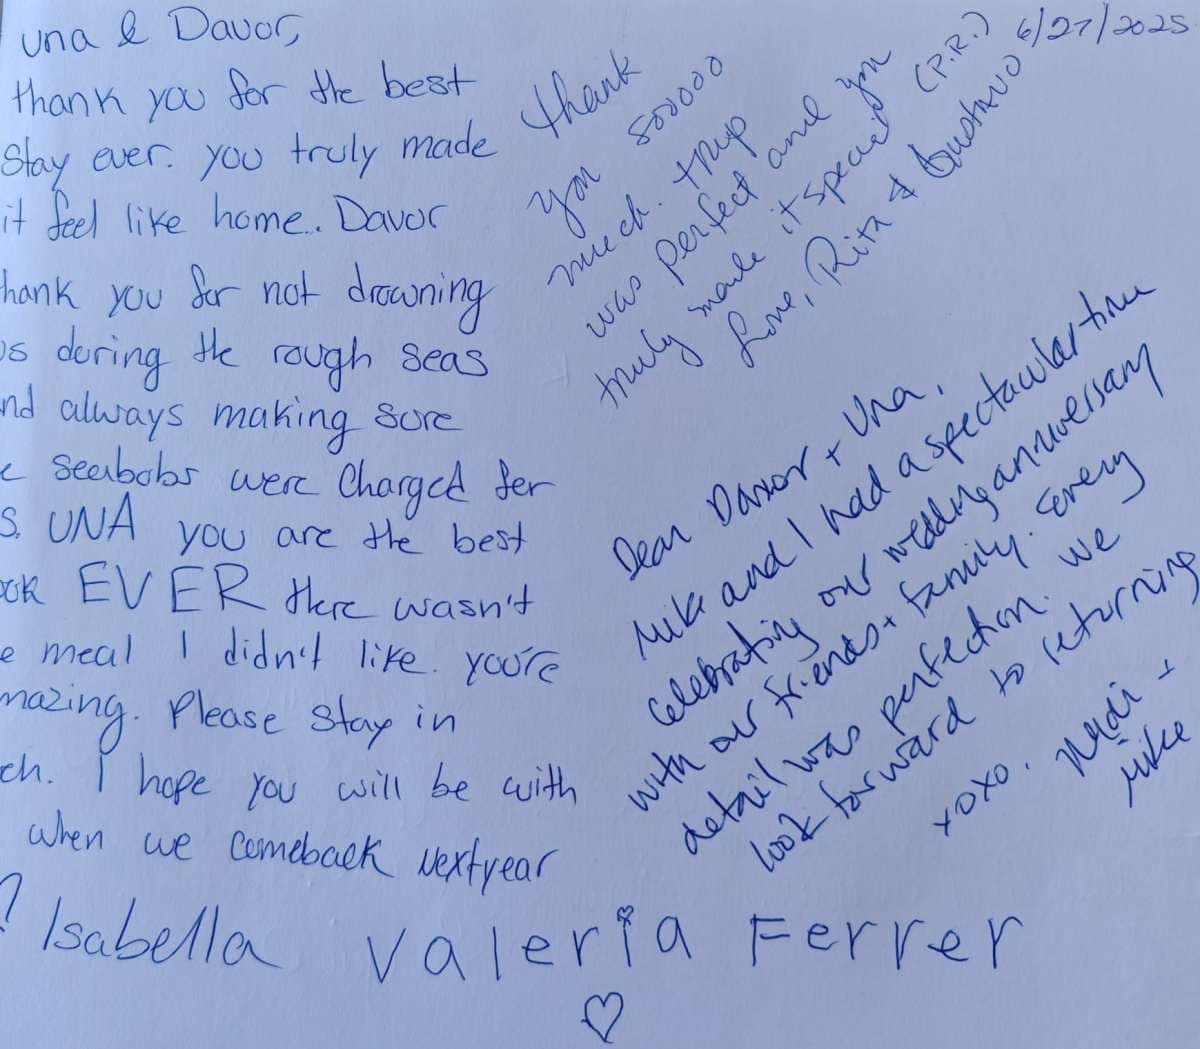 una & Davor,
thank you for the best
Stay ever. you truly made
it feel like home. Davor
hank you for not drowning
us during the rough seas
nd always making sure
e seabobs were charged for
s. UNA you are the best
ook EVER there wasn't
e meal I didn't like. you're
mazing. Please stay in
ch. I hope you will be with
when we comeback Next year
Isabella Valeria Ferrer
6/27/2025
thank
you sooooo
much. trip
was perfect and you
truly made it special (P.R.)
Love, Rita & Gustavo
Dear Davor + Una,
Mike and I had a spectacular time
celebrating our wedding anniversary
with our friends + family. Every
detail was perfection. We
look forward to returning
xoxo. +
Mike